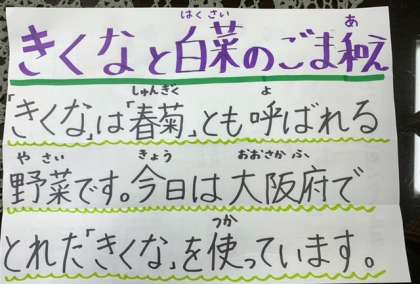 はくさい あ
きくなと白菜のごま和え
しゅんぎく よ
「きくな」は「春菊」とも呼ばれる
やさい きょう おおさかふ
野菜です。今日は大阪府で
つか
とれた「きくな」を使っています。